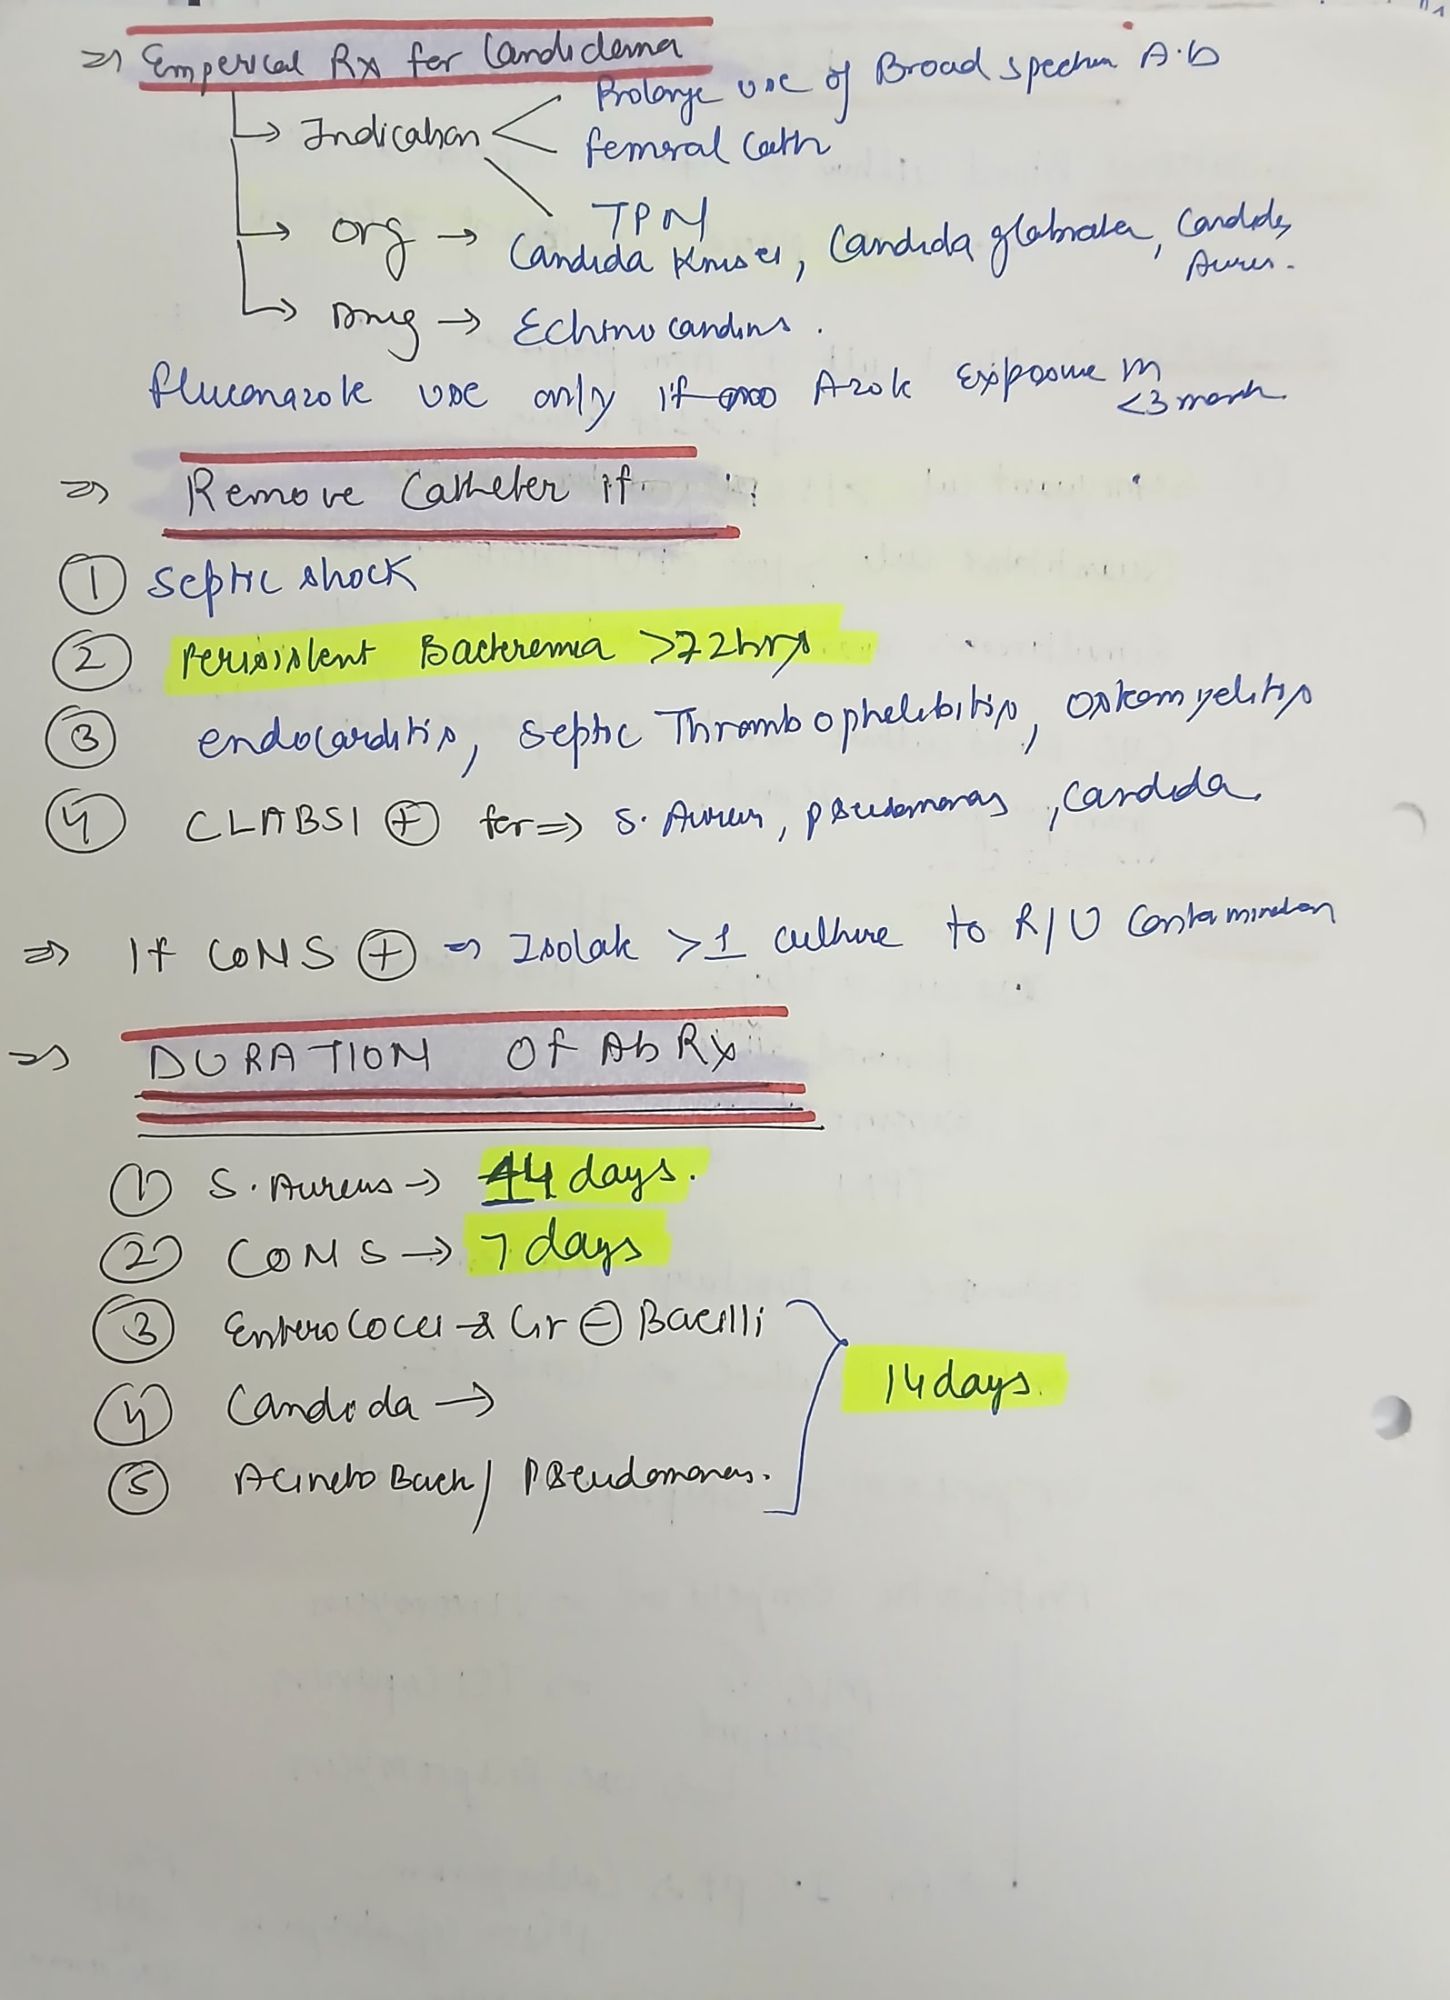 => Emperical Rx for Candidema
↳ Indication < Prolonge use of Broad spectrum A.b
femoral Cath
TPN
↳ Org → Candida Krusei, Candida glabrata, Candida
Aures.
↳ Drug → Echinocandins.
fluconazole use only if no Azole Exposure in
<3 month
=> Remove Catheter if
① Septic shock
② Persisistent Bacteremia >72hrs
③ endocarditis, Septic Thrombophelebitis, Osteomyelitis
④ CLABSI ⊕ for => S. Aureus, Pseudomonas, Candida
=> If CONS ⊕ => Isolate >1 culture to R/O Contamination
=> DURATION Of Ab Rx
① S. Aureus → 14 days.
② CONS → 7 days
③ Enterococci & Gr ⊖ Bacilli
④ Candida → 14 days.
⑤ AcinetoBact/ Pseudomonas.